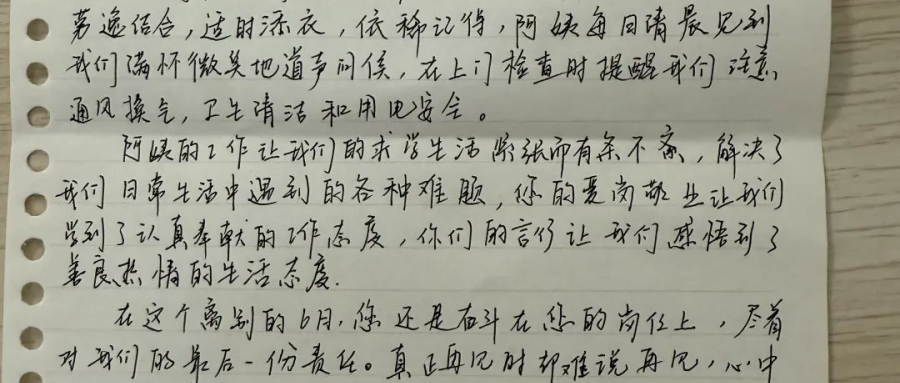 劳逸结合，适时添衣，依稀记得，阿姨每日清晨见到
我们满怀微笑地道声问候，在上门检查时提醒我们注意
通风换气，卫生清洁和用电安全。
阿姨的工作让我们的求学生活紧张而有条不紊，解决了
我们日常生活中遇到的各种难题，您的爱岗敬业让我们
学到了认真奉献的工作态度，你们的言行让我们感悟到了
善良热情的生活态度.
在这个离别的6月，您还是奋斗在您的岗位上，尽着
对我们的最后一份责任。真正再见时却难说再见，心中